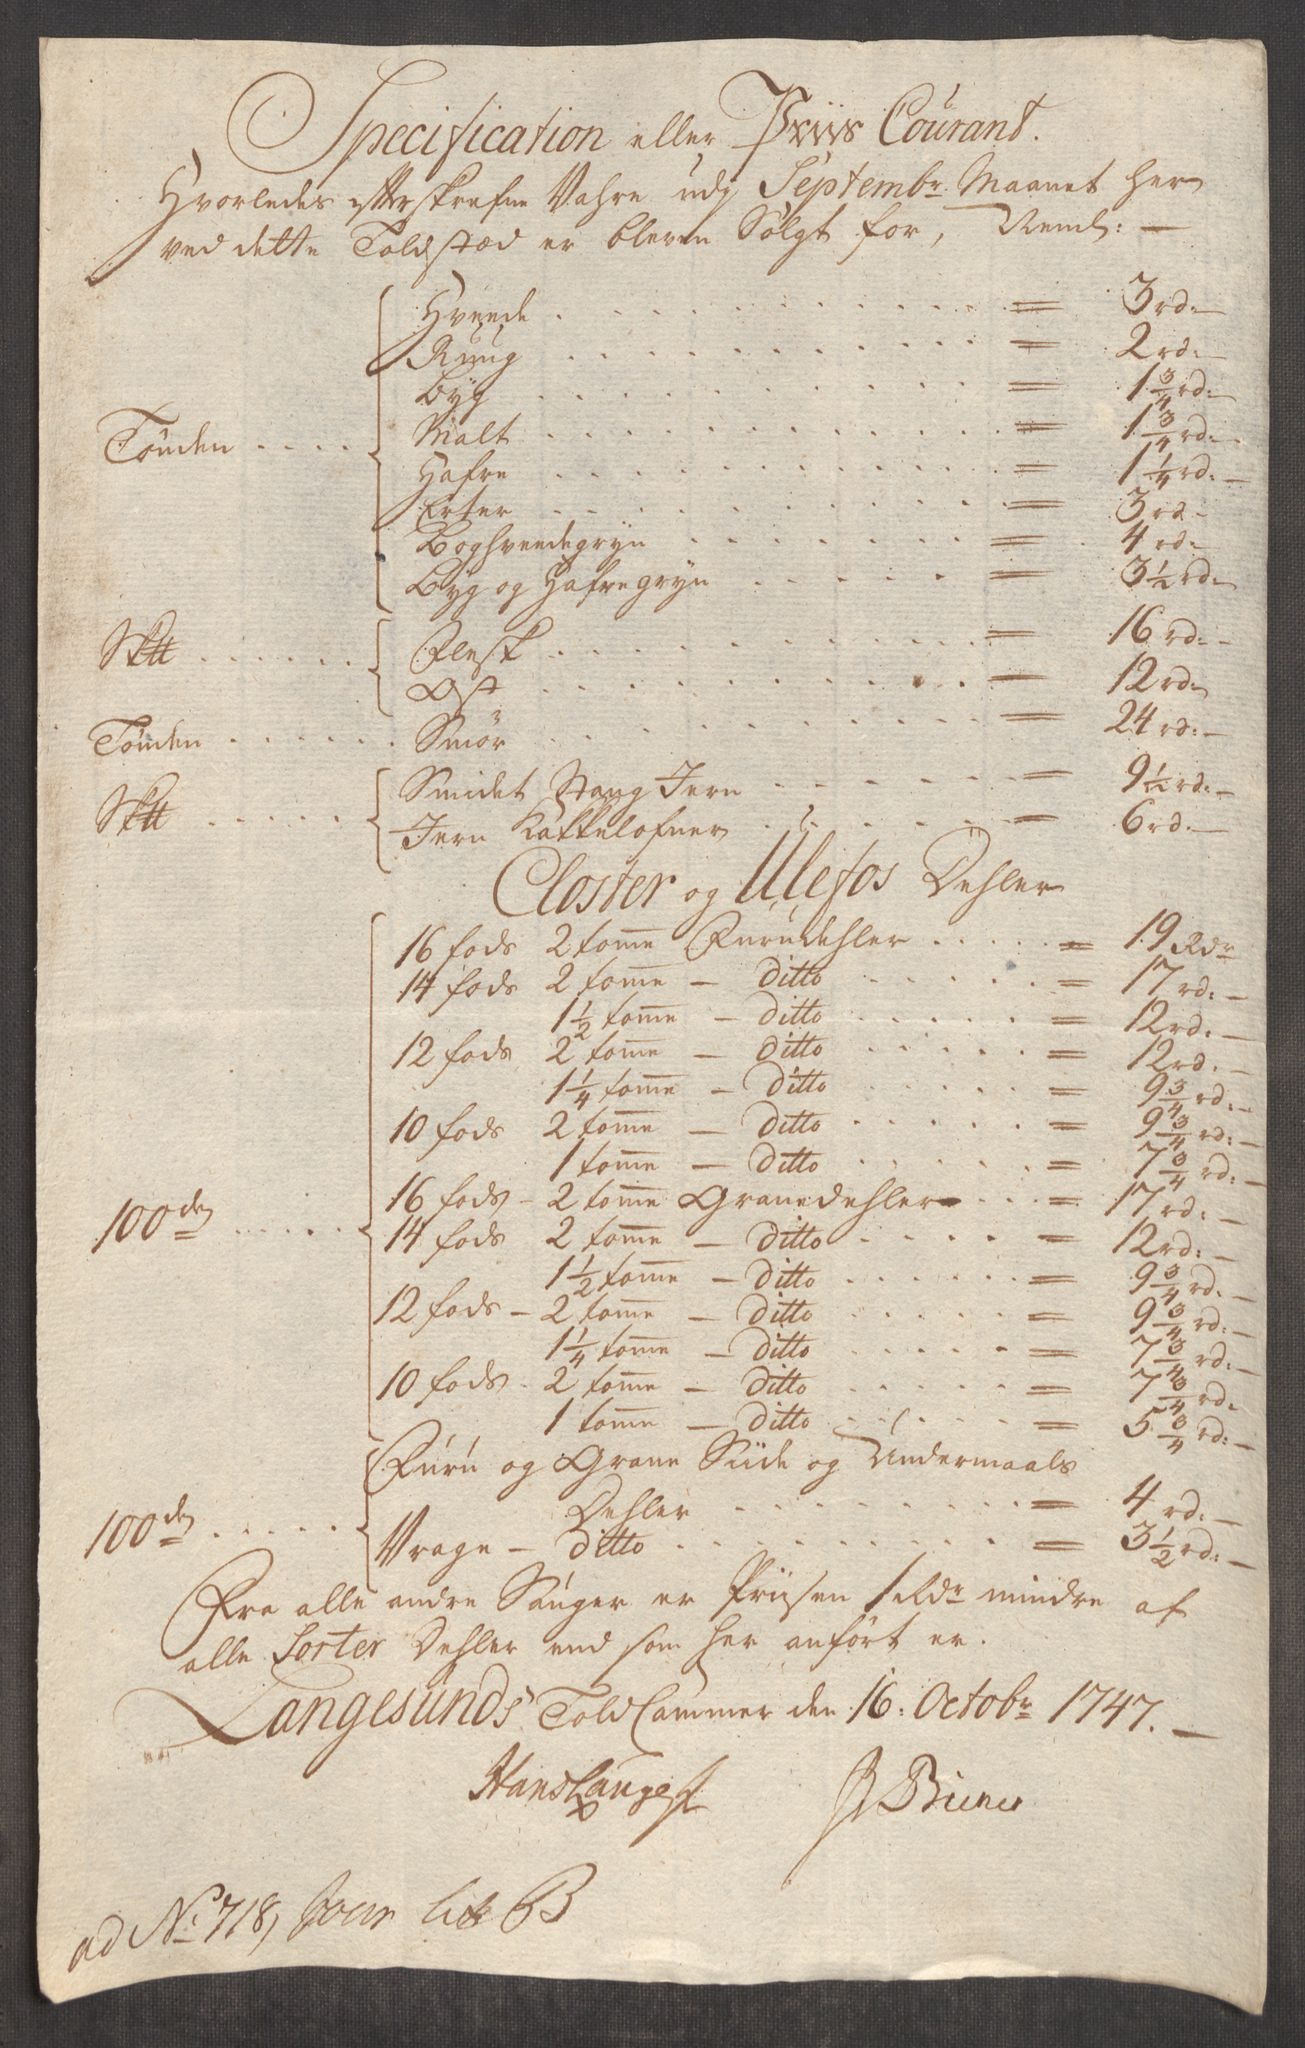 Specification eller Priis Courant.
Hvorledes efterskrefne Vahre udj Septembr. Maanet her
ved dette Toldstæd er bleven Solgt for, Neml: —
Tönden . . . . Hveede . . . = 3 rd: —
Ruug . . . = 2 rd: —
Byg . . . = 1 3/4 rd: —
Malt . . . = 1 3/4 rd: —
Hafre . . . = 1 1/4 rd: —
Erter . . . = 3 rd —
Boghveedegryn . . . = 4 rd: —
Byg og Hafregryn . . . = 3 1/2 rd: —
Sktt . . . . Flesk . . . = 16 rd: —
Ost . . . = 12 rd:
Tönden . . . . Smör . . . = 24 rd: —
Sktt . . . . Smidet Stang Jern . . . = 9 1/2 rd: —
Jern Kakkelofner . . . = 6 rd: —
Closter og Ulefos Dehler
100den . . . . 16 fods 2 tomme Furudehler . . . = 19 Rdr
14 fods 2 tomme — Ditto . . . = 17 rd: —
1 1/2 tomme — Ditto . . . = 12 rd: —
12 fods 2 tomme — Ditto . . . = 12 rd: —
1 1/4 tomme — Ditto . . . = 9 3/4 rd: —
10 fods 2 tomme — Ditto . . . = 9 3/4 rd: —
1 tomme — Ditto . . . = 7 3/4 rd: —
16 fods — 2 tomme Granedehler . . . = 17 rd: —
14 fods 2 tomme — Ditto . . . = 12 rd: —
1 1/2 tomme — Ditto . . . = 9 3/4 rd: —
12 fods — 2 tomme — Ditto . . . = 9 3/4 rd: —
1 1/4 tomme — Ditto . . . = 7 3/4 rd: —
10 fods - 2 tomme — Ditto . . . = 7 3/4 rd:
1 tomme — Ditto . . . = 5 3/4 rd: —
100den . . . . Furu og Grane Siide og Undermaals
Dehler . . . = 4 rd: —
Vrage — Ditto . . . = 3 1/2 rd: —
Fra alle andre Sauger er Priisen 1 Rdr mindre af
alle Sorter Dehler end som her anfört er.
Langesunds Told Cammer den 16. Octobr 1747. —
Hans Lange
ad No. 718, Litr B